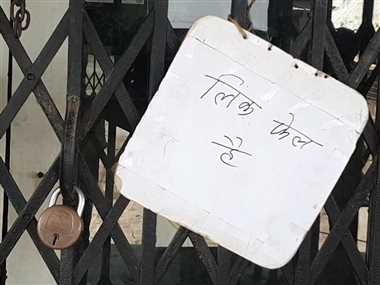 लिक फेल
है